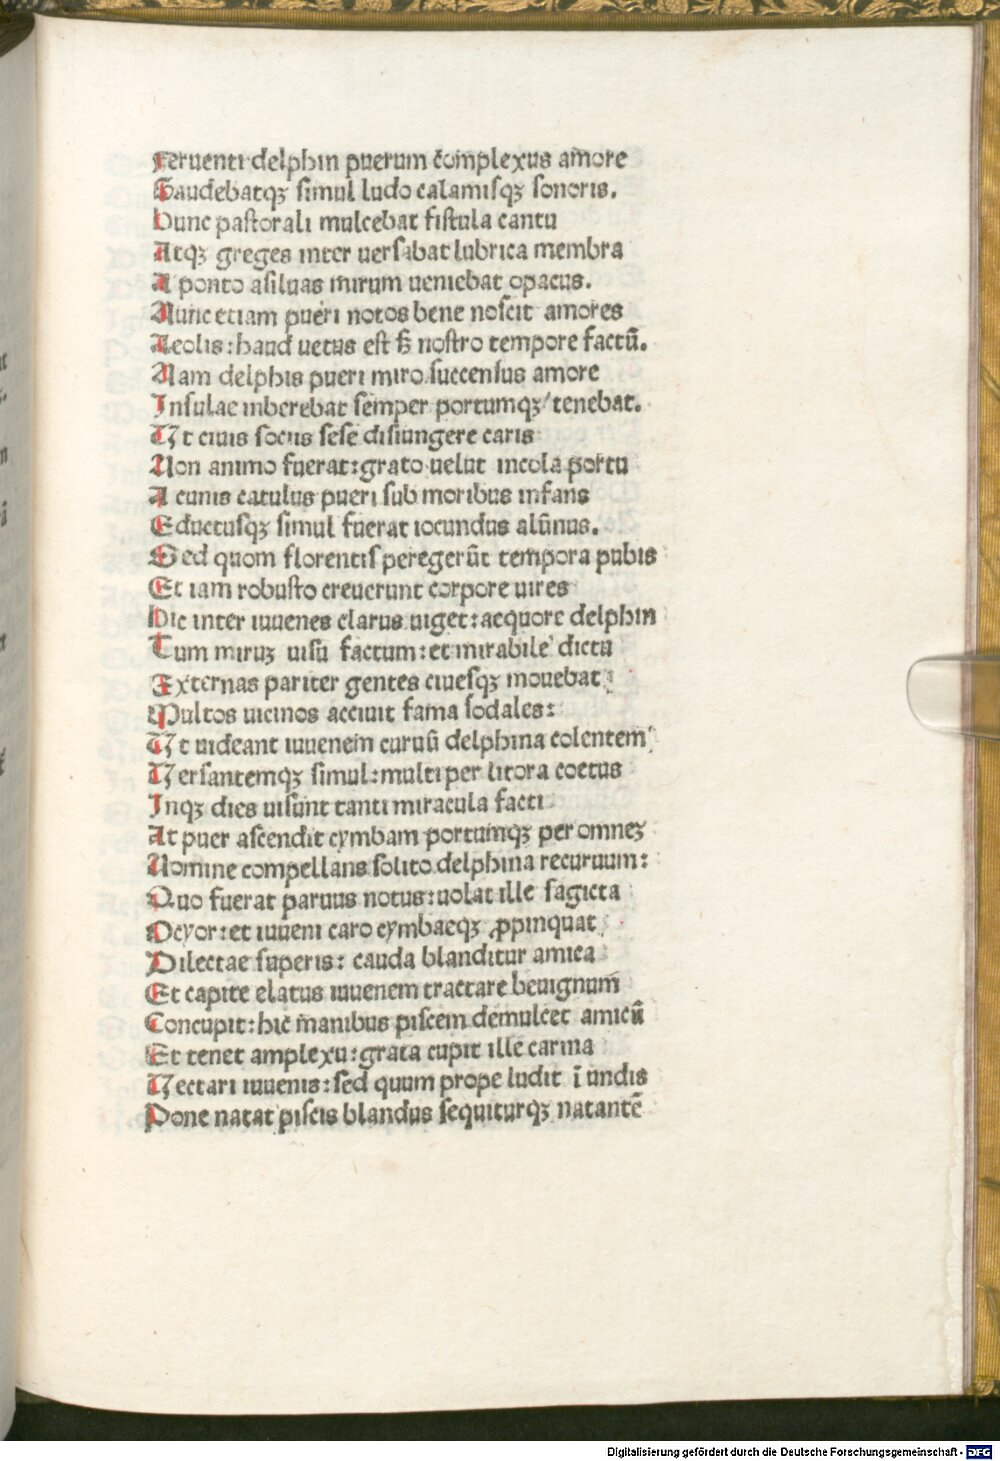 Feruenti delphin puerum complexus amore
Gaudebatqꝫ simul ludo calamisqꝫ sonoris.
Hunc pastorali mulcebat fistula cantu
Atqꝫ greges inter uersabat lubrica membra
A ponto asiluas mirum ueniebat opacus.
Nunc etiam pueri notos bene noscit amores
Aeolis:haud uetus est sꝫ nostro tempore factū.
Nam delphis pueri miro succensus amore
Insulae inherebat semper portumqꝫ/tenebat.
Vt ciuis socius sese disiungere caris
Non animo fuerat:grato uelut incola portu
A cunis catulus pueri sub moribus infans
Eductusqꝫ simul fuerat iocundus alūnus.
Sed quom florentis peregerūt tempora pubis
Et iam robusto creuerunt corpore uires
Hic inter iuuenes clarus uiget:aequore delphin
Tum miruꝫ uisū factum:et mirabile dictu
Externas pariter gentes ciuesqꝫ mouebat:
Multos uicinos acciuit fama sodales:
Vt uideant iuuenem curuū delphina colentem
Versantemqꝫ simul:multi per litora coetus
Inqꝫ dies uisunt tanti miracula facti
At puer ascendit cymbam portumqꝫ per omneꝫ
Nomine compellans solito delphina recuruum:
Quo fuerat paruus notus:uolat ille sagicta
Ocyor:et iuueni caro cymbaeqꝫ ꝓpinquat
Dilectae superis: cauda blanditur amica
Et capite elatus iuuenem tractare beuignum
Concupit:hic manibus piscem demulcet amicū
Et tenet amplexu:grata cupit ille carina
Vectari iuuenis:sed quum prope ludit ī undis
Pone natat piscis blandus sequiturqꝫ natantē
Digitalisierung gefördert durch die Deutsche Forschungsgemeinschaft - DFG